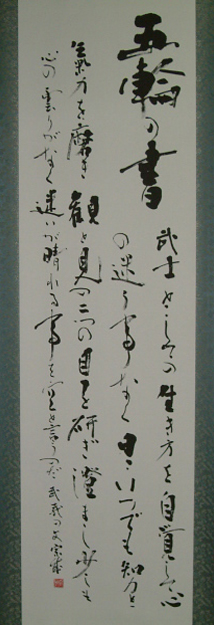 五輪の書
武士としての生き方を自覚して心
の迷う事なく日々いつでも知力と
気力を磨き観と見の二つの目を研ぎ澄まし少しも
心の雲りがなく迷いが晴れる事を空と言うのだ
武蔵の文